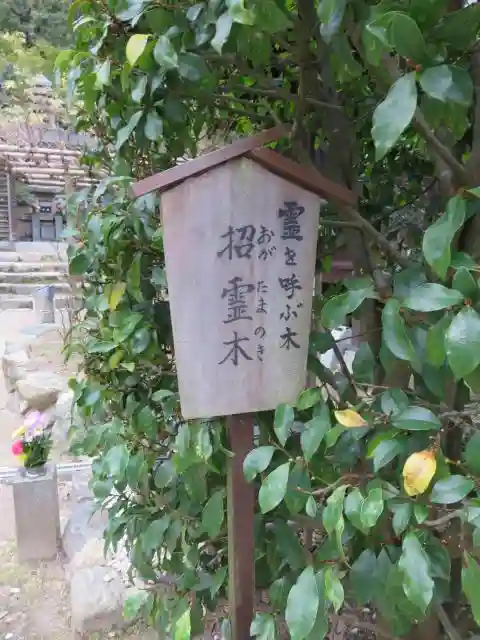 霊を呼ぶ木
おがたまのき
招霊木